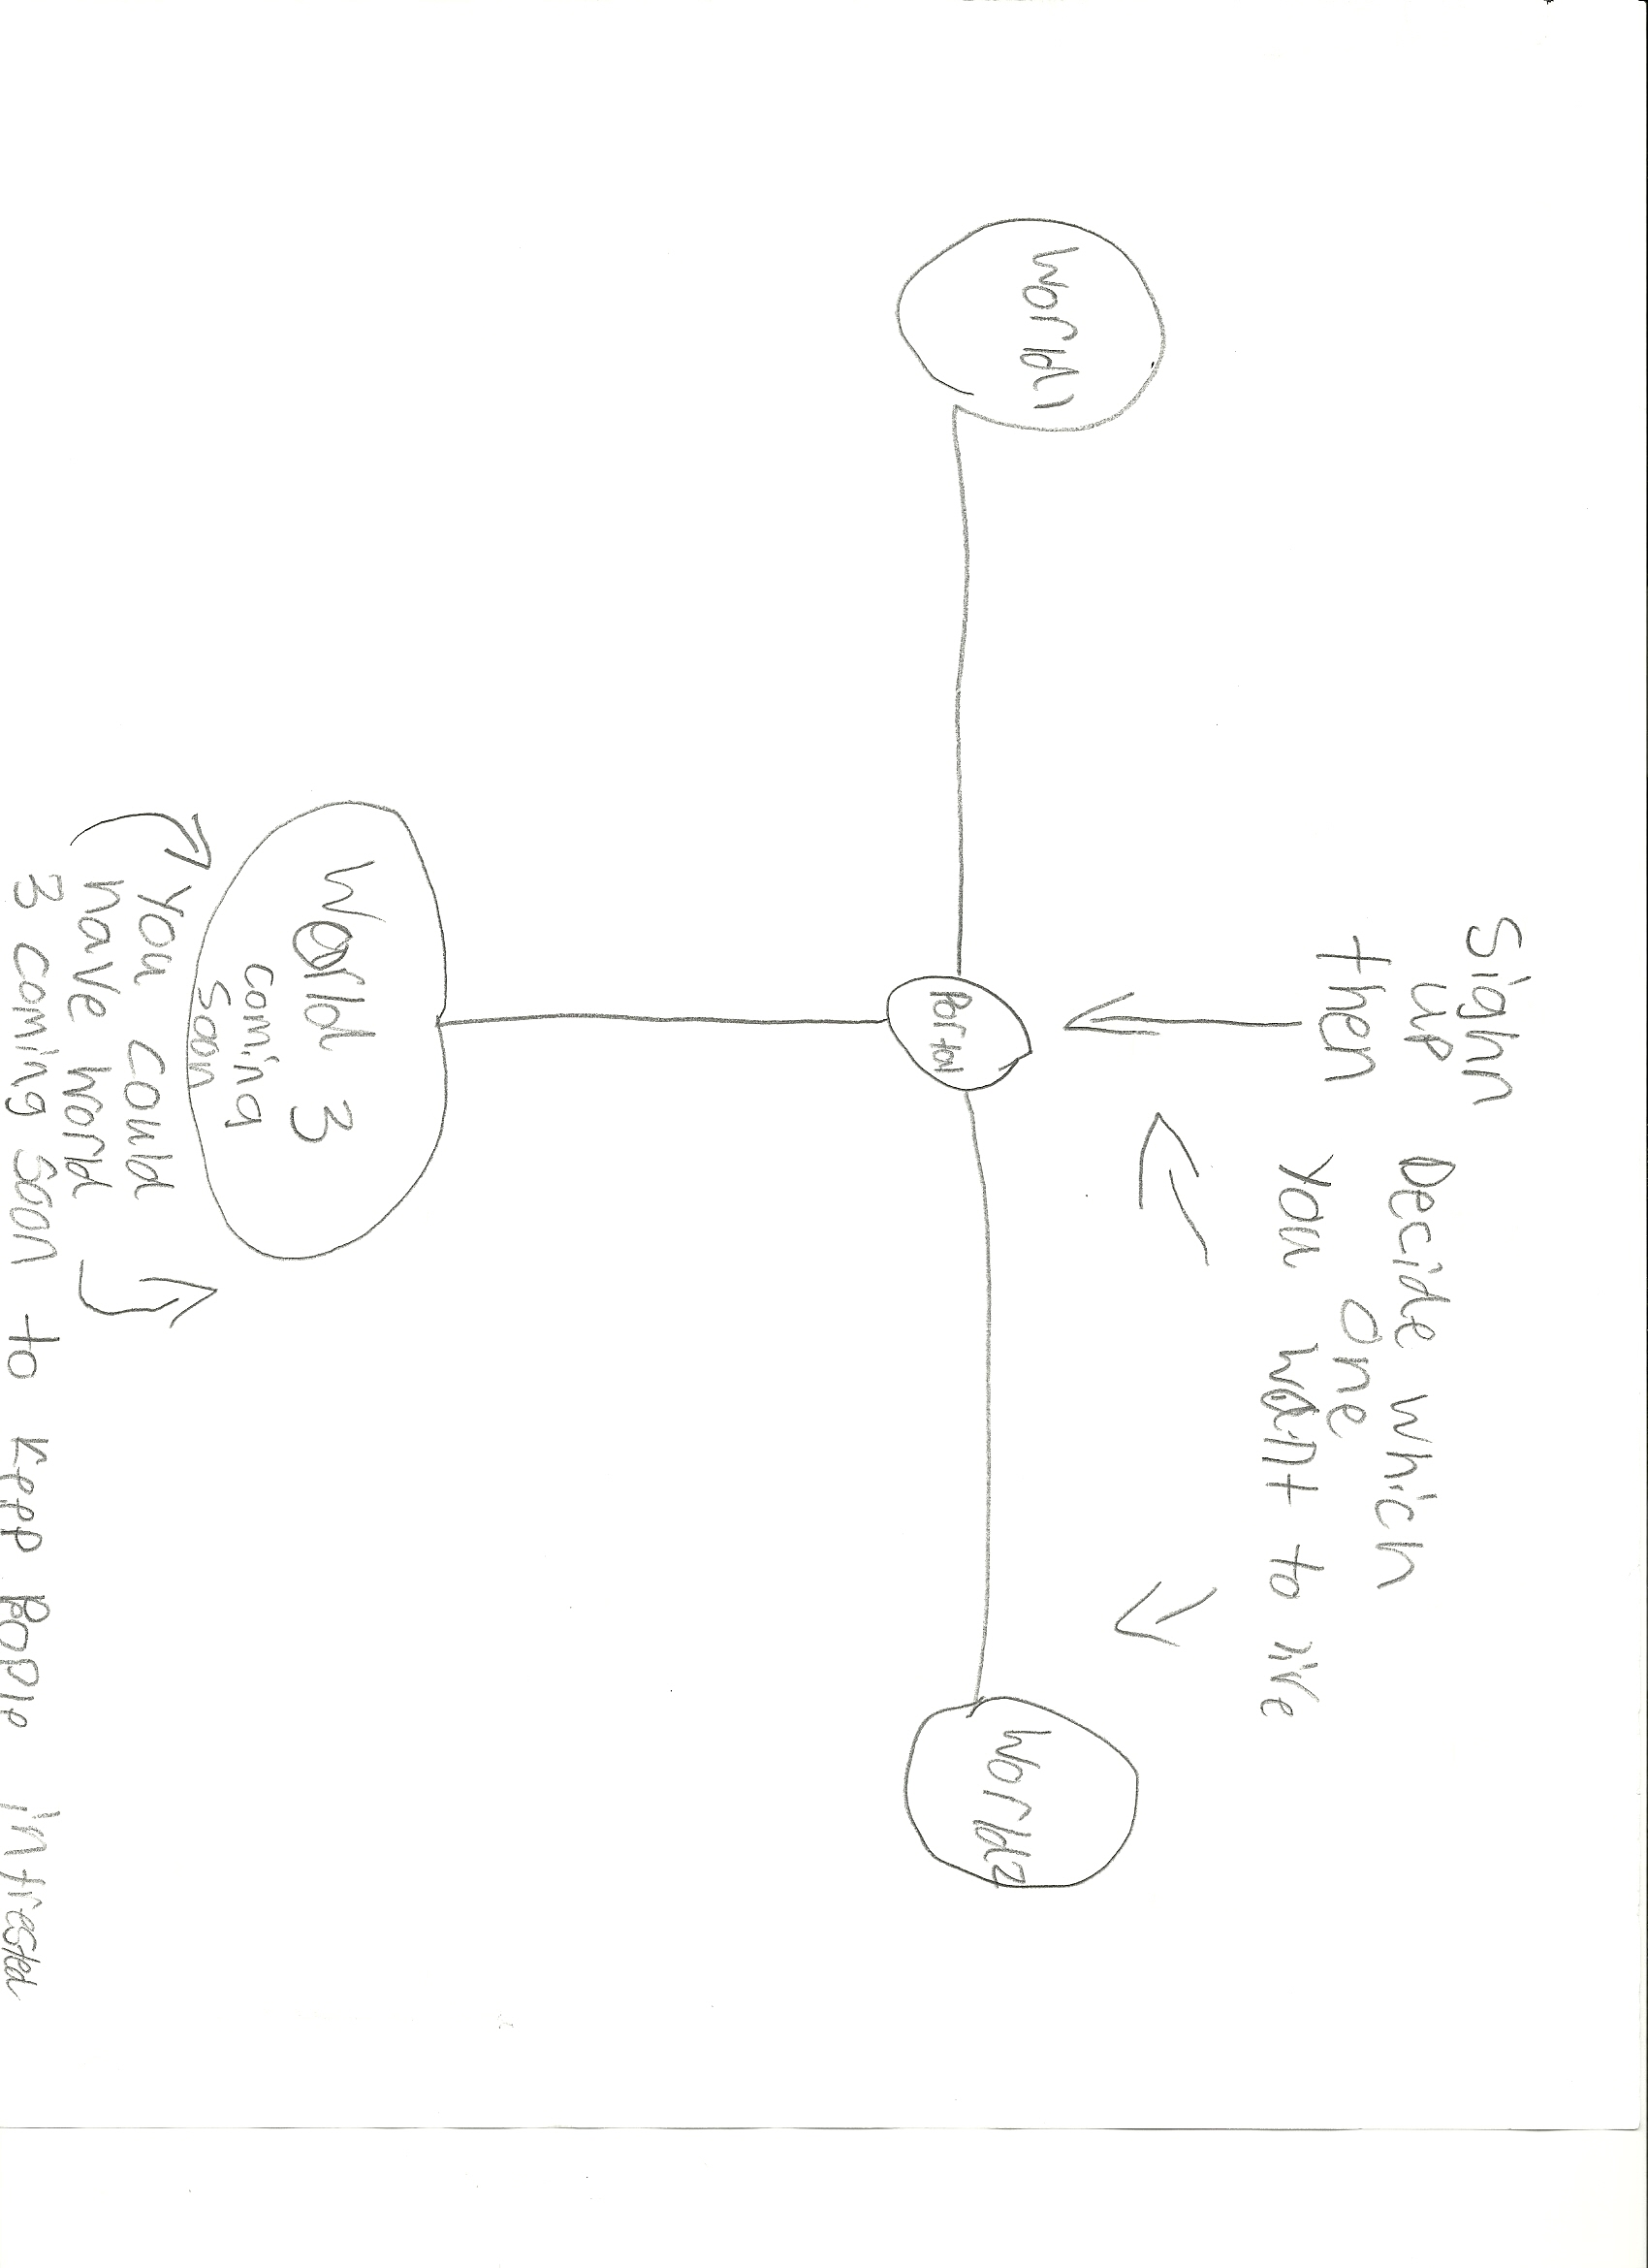 Sighn
up
then
Decide which
one
you want to live
World1
Portal
World2
World 3
coming
soon
You could
have World
3 coming soon to keep Pople intrested